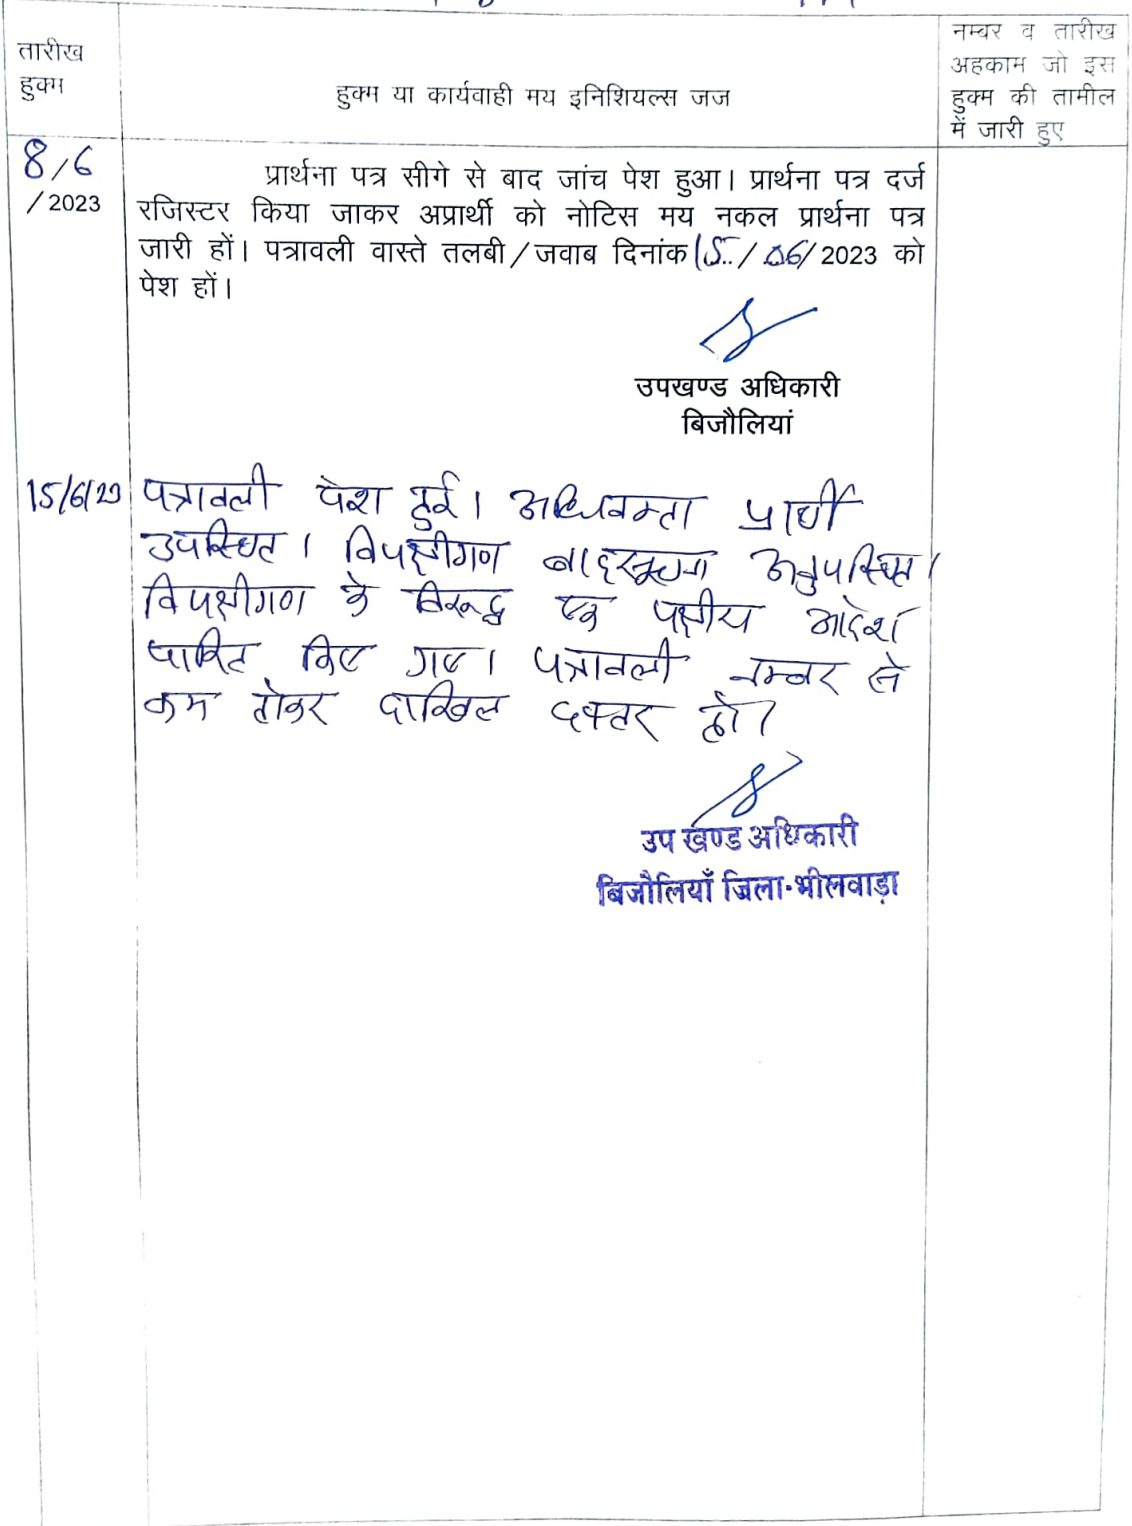 तारीख
हुक्म
हुक्म या कार्यवाही मय इनिशियल्स जज
नम्बर व तारीख
अहकाम जो इस
हुक्म की तामील
में जारी हुए
8/6
/2023
प्रार्थना पत्र सीगे से बाद जांच पेश हुआ। प्रार्थना पत्र दर्ज
रजिस्टर किया जाकर अप्रार्थी को नोटिस मय नकल प्रार्थना पत्र
जारी हों। पत्रावली वास्ते तलबी/जवाब दिनांक 15../06/2023 को
पेश हों।
उपखण्ड अधिकारी
बिजौलियां
15/6/23 पत्रावली पेश हुई। अधिवक्ता प्रार्थी
उपस्थित। विपक्षीगण बादसूचना अनुपस्थित।
विपक्षीगण के विरूद्ध एक पक्षीय आदेश
पारित किए गए। पत्रावली नम्बर से
कम होकर दाखिल दफ्तर हो।
उप खण्ड अधिकारी
बिजौलियाँ जिला-भीलवाड़ा